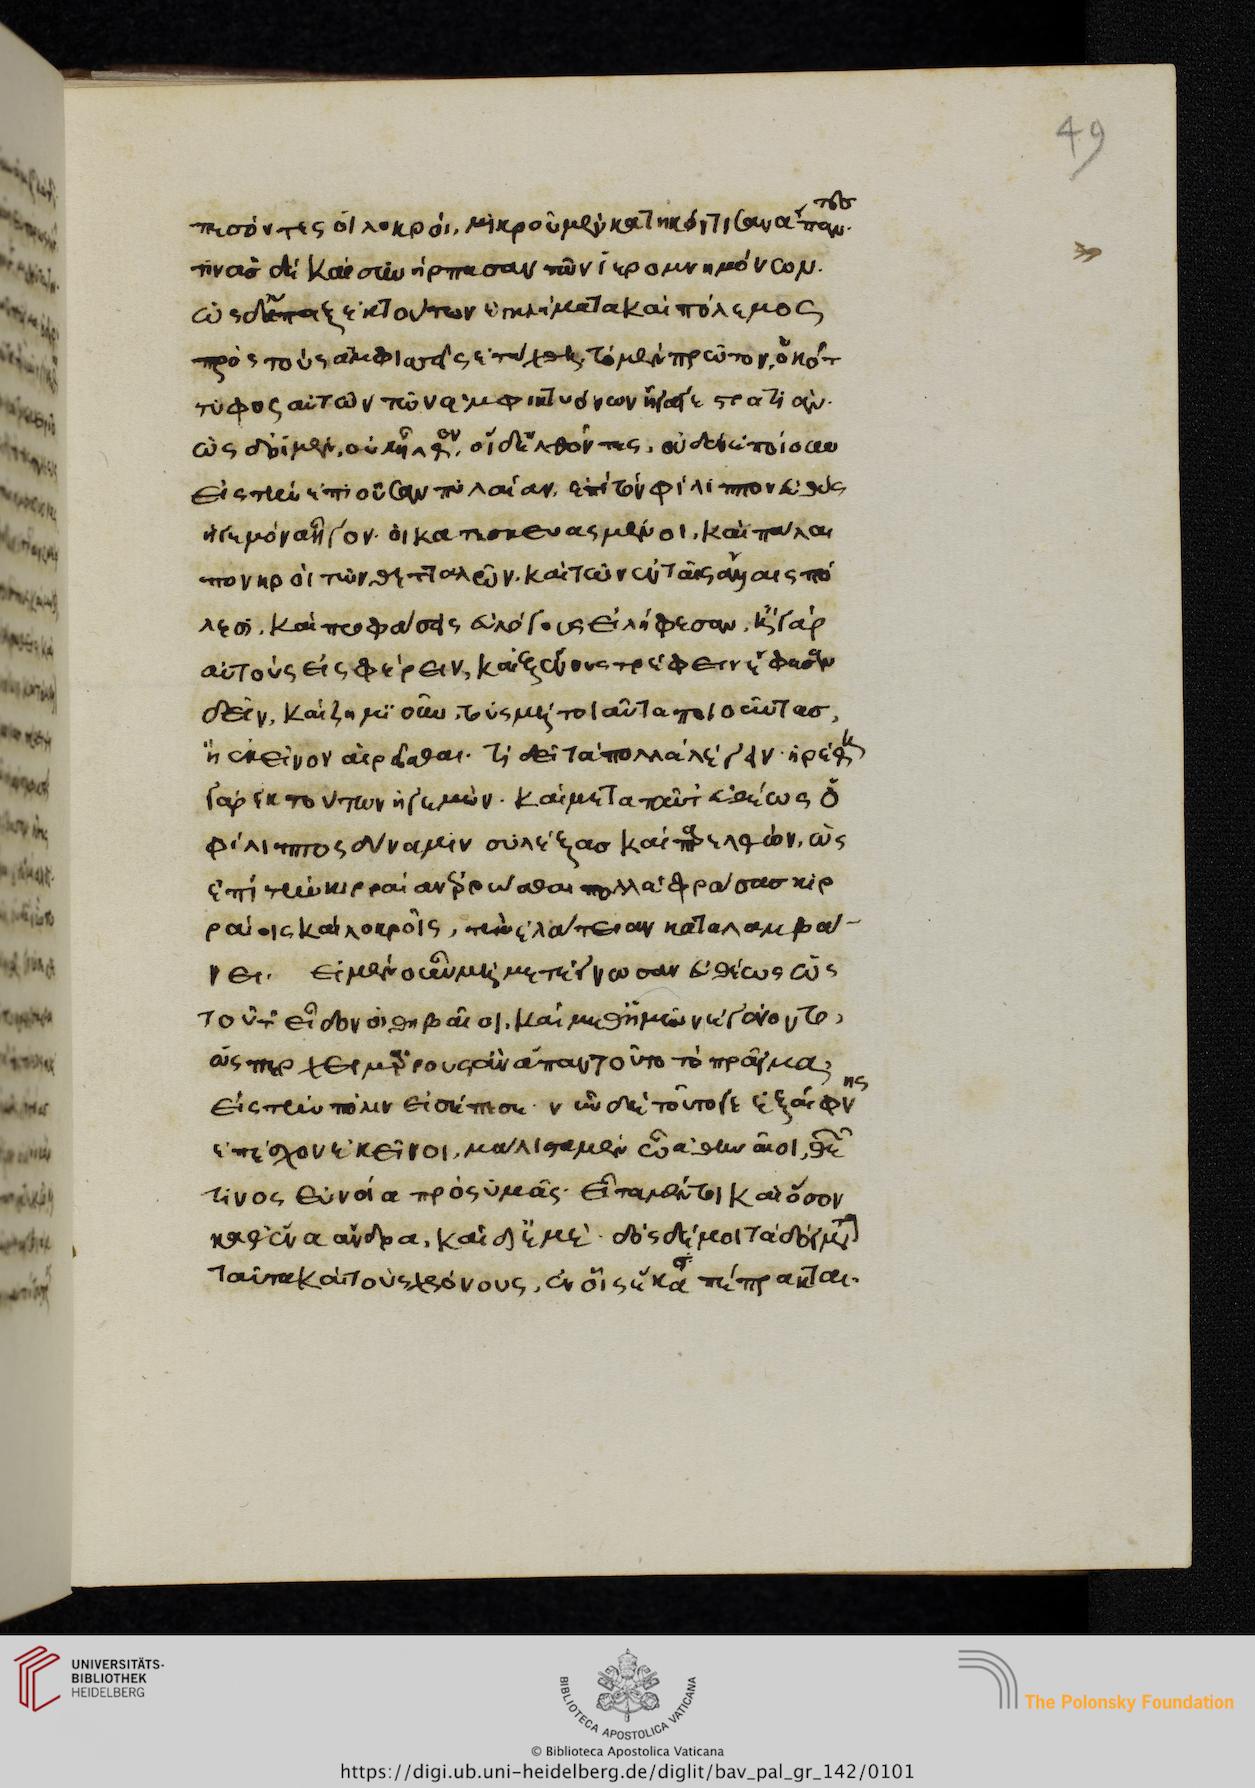 49
πεσόντες οἱ λοκροί, μικροῦ μὲν κατηκόντισαν ἅπαντας.
τινὰς δὲ καὶ συνήρπασαν τῶν ἱερομνημόνων.
ὡς δ' ἅπαξ ἐκ τούτων ἐγκλήματα καὶ πόλεμος
πρὸς τοὺς ἀμφισσεῖς ἐταράχθη, τὸ μὲν πρῶτον, ὁ κότ
τυφος αὐτῶν τῶν ἀμφικτυόνων ἤγαγε στρατιάν.
ὡς δ' οἱ μὲν, οὐκ ἦλθον, οἱ δ' ἐλθόντες, οὐδὲν ἐποίουν
εἰς τὴν ἐπιοῦσαν πυλαίαν, ἐπὶ τὸν φίλιππον εὐθὺς
ἡγεμόνα ἦγον. οἱ κατεσκευασμένοι, καὶ πάλαι
πονηροὶ τῶν θετταλῶν. καὶ τῶν ἐν ταῖς ἄλλαις πό
λεσι. καὶ προφάσεις εὐλόγους εἰλήφεσαν, ἢ γὰρ
αὐτοὺς εἰσφέρειν, καὶ ξένους τρέφειν ἔφασαν
δεῖν, καὶ ζημιοῦν, τοὺς μὴ τοιαῦτα ποιοῦντας,
ἢ ἐκεῖνον αἱρεῖσθαι. τί δεῖ τὰ πολλὰ λέγειν. ἡρέθη
γὰρ ἐκ τούτων ἡγεμών. καὶ μετὰ ταῦτ' εὐθέως ὁ
φίλιππος δύναμιν συλλέξας καὶ παρελθών, ὡς
ἐπὶ τὴν κιρραίαν ἐρρῶσθαι πολλὰ φράσας κιρ
ραίοις καὶ λοκροῖς, τὴν ἐλάτειαν καταλαμβά-
νει. εἰ μὲν οὖν μὴ μετέγνωσαν εὐθέως ὡς
τοῦτ' εἶδον οἱ θηβαῖοι, καὶ μεθ' ἡμῶν ἐγένοντο,
ὥσπερ χειμάρρους ἂν ἅπαν τοῦτο τὸ πρᾶγμα
εἰς τὴν πόλιν εἰσέπεσε. νῦν δὲ τοῦτό γε ἐξαίφνης
ἐπέσχον ἐκεῖνοι, μάλιστα μὲν ὦ ἀθηναῖοι, θεῶν
τινος εὐνοία πρὸς ὑμᾶς. εἶτα μέντοι καὶ ὅσον
καθ' ἕνα ἄνδρα, καὶ δι' ἐμέ. δὸς δέ μοι τὰ δόγματα
ταῦτα καὶ τοὺς χρόνους, ἐν οἷς ἕκαστα πέπρακται.
UNIVERSITÄTS-
BIBLIOTHEK
HEIDELBERG
BIBLIOTECA APOSTOLICA VATICANA
The Polonsky Foundation
© Biblioteca Apostolica Vaticana
https://digi.ub.uni-heidelberg.de/diglit/bav_pal_gr_142/0101